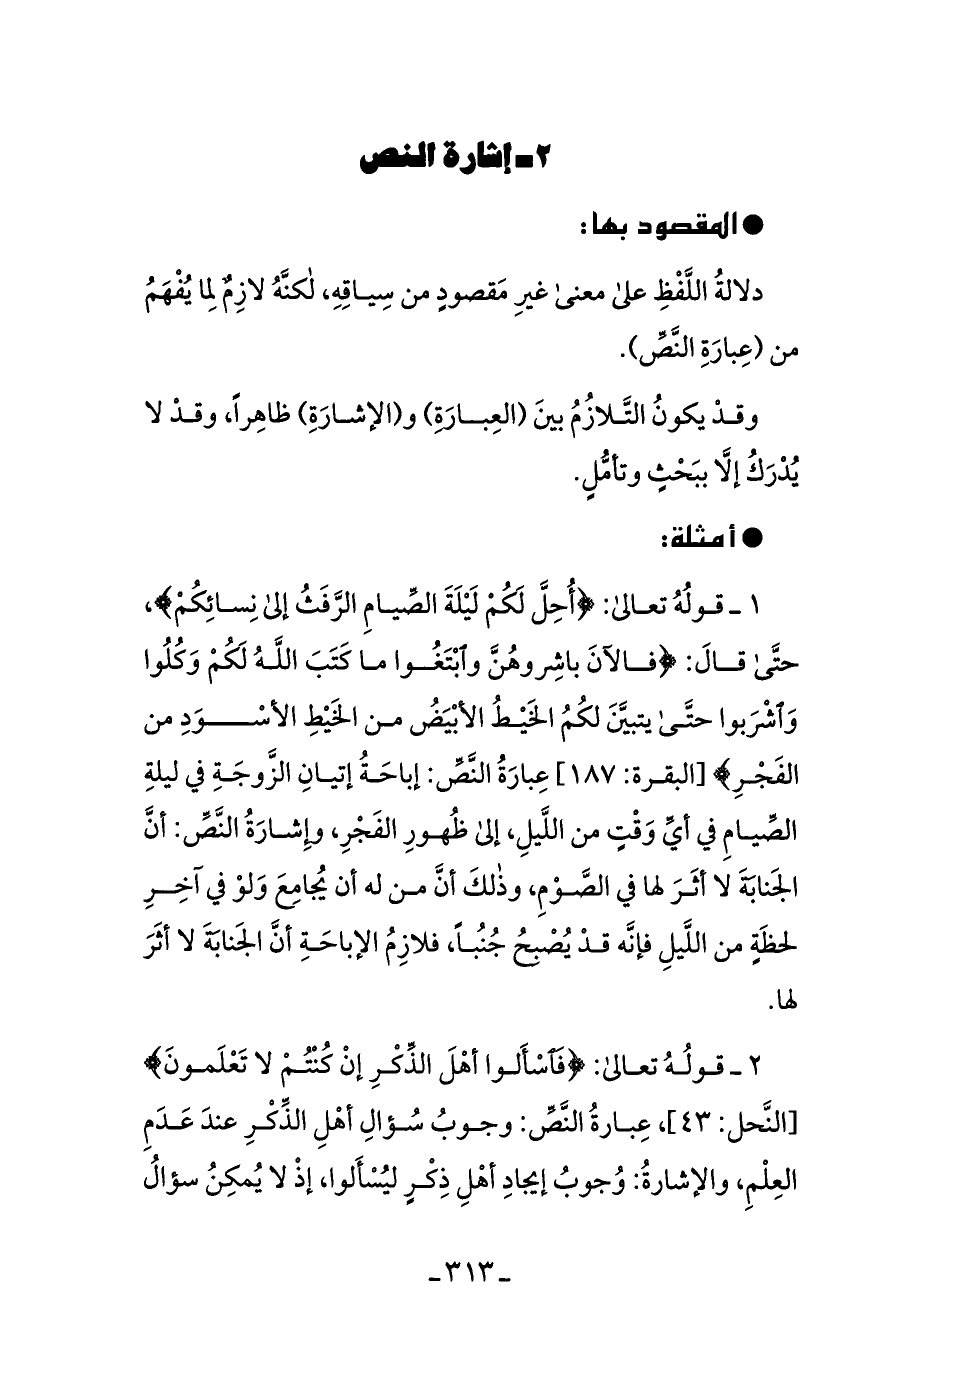 ٢ـ إشارة النص
● المقصود بها:
دلالةُ اللَّفْظِ علىٰ معنىٰ غيرِ مَقصودٍ من سِياقِهِ، لٰكنَّهُ لازِمٌ لِما يُفْهَمُ
من (عِبارَةِ النَّصِّ).
وقدْ يكونُ التَّلازُمُ بينَ (العِبارَةِ) و(الإشارَةِ) ظاهِراً، وقدْ لا
يُدْرَكُ إلَّا ببَحْثٍ وتأمُّلٍ.
● أمثلة:
١ ـ قولُهُ تعالىٰ: ﴿أُحِلَّ لَكُمْ لَيْلَةَ الصِّيامِ الرَّفَثُ إلىٰ نِسائِكُمْ﴾،
حتَّىٰ قالَ: ﴿فالآنَ باشِروهُنَّ وٱبْتَغُوا ما كَتَبَ اللَّهُ لَكُمْ وَكُلُوا
وَٱشْرَبوا حتَّىٰ يتبيَّنَ لكُمُ الخَيْطُ الأبْيَضُ من الخَيْطِ الأسْوَدِ من
الفَجْرِ﴾ [البقرة: ١٨٧] عِبارَةُ النَّصِّ: إباحَةُ إتيانِ الزَّوجَةِ في ليلةِ
الصِّيامِ في أيِّ وَقْتٍ من اللَّيلِ، إلىٰ ظُهورِ الفَجْرِ، وإشارَةُ النَّصِّ: أنَّ
الجَنابَةَ لا أثَرَ لها في الصَّوْمِ، وذٰلكَ أنَّ من له أن يُجامِعَ وَلوْ في آخِرِ
لحظَةٍ من اللَّيلِ فإنَّه قدْ يُصْبِحُ جُنُباً، فلازِمُ الإباحَةِ أنَّ الجَنابَةَ لا أثَرَ
لها.
٢ ـ قولُهُ تعالىٰ: ﴿فَٱسْأَلوا أهْلَ الذِّكْرِ إنْ كُنْتُمْ لا تَعْلَمونَ﴾
[النَّحل: ٤٣]، عِبارةُ النَّصِّ: وجوبُ سُؤالِ أهْلِ الذِّكْرِ عندَ عَدَمِ
العِلْمِ، والإشارةُ: وُجوبُ إيجادِ أهْلِ ذِكْرٍ ليُسْألوا، إذْ لا يُمكِنُ سؤالُ
ـ ٣١٣ ـ